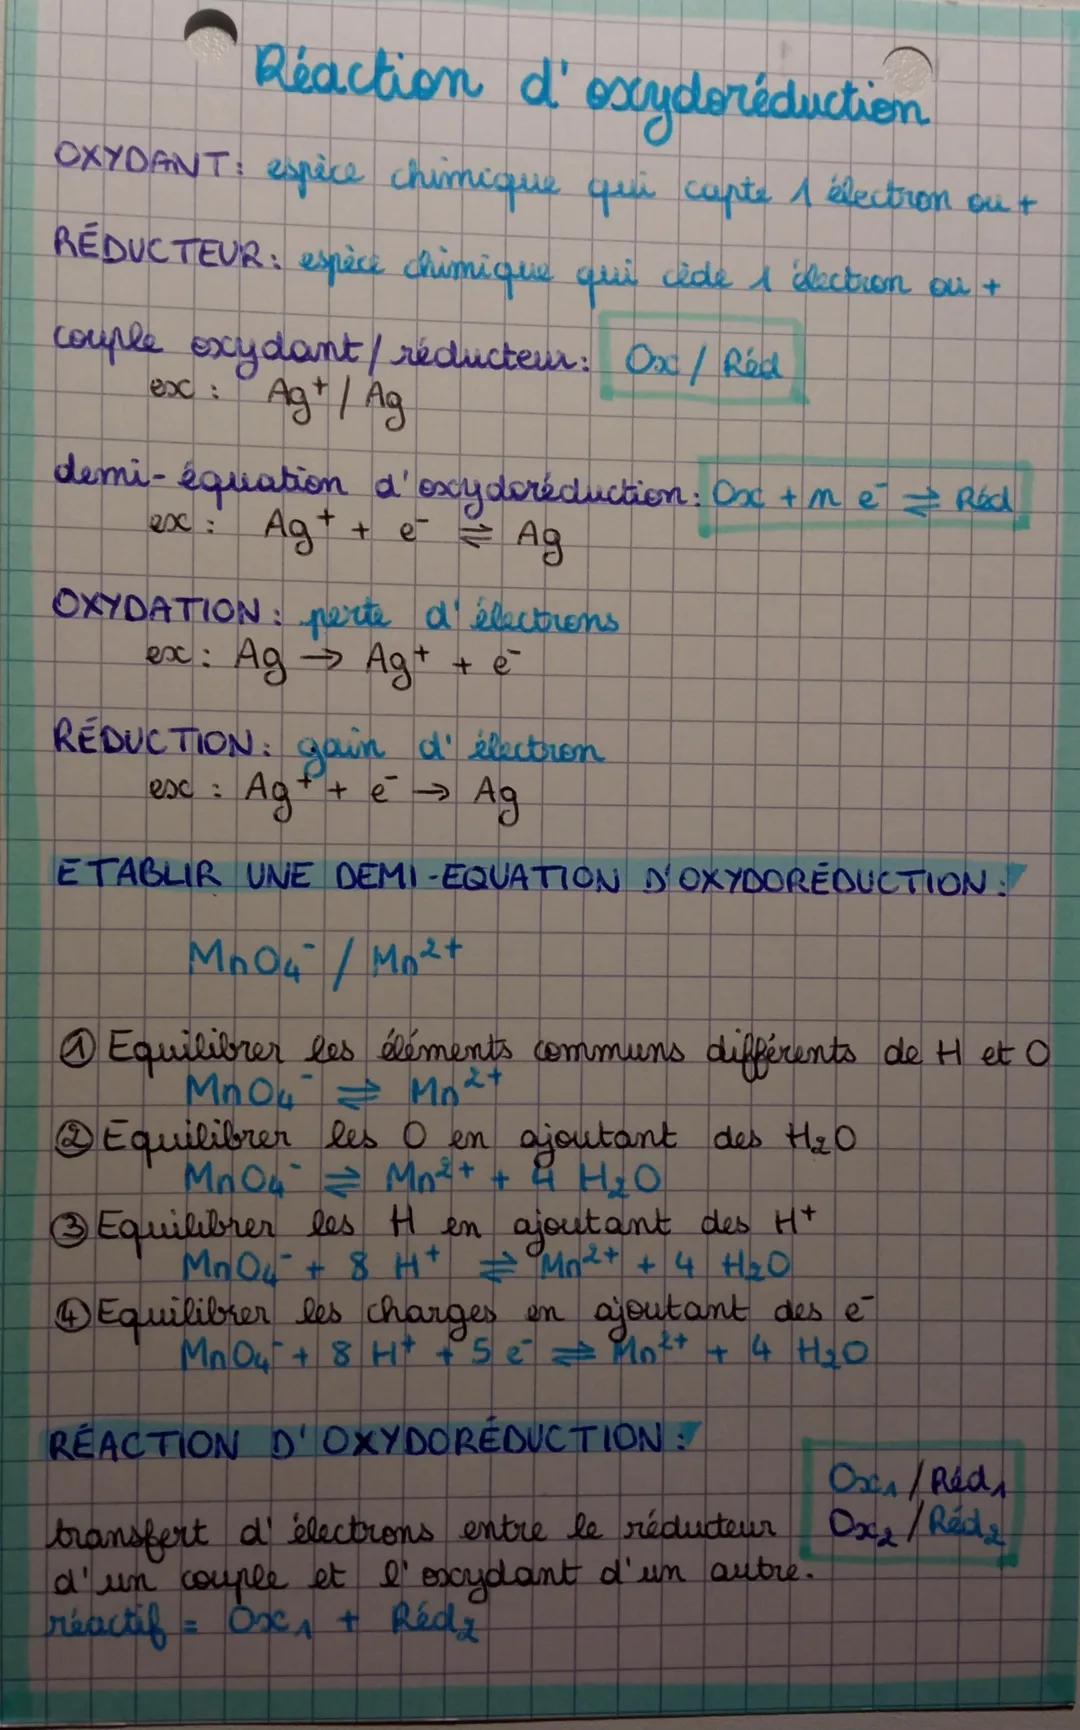 Réaction d'oxydoréduction
OXYDANT: espèce chimique qui capte 1 électron ou +
RÉDUCTEUR: espèce chimique qui cède 1 électron ou +
couple oxydant/réducteur: Ox / Réd
ex : Ag⁺ / Ag
demi-équation d'oxydoréduction: Ox + n e⁻ ⇌ Réd
ex : Ag⁺ + e⁻ ⇌ Ag
OXYDATION : perte d'électrons
ex : Ag → Ag⁺ + e⁻
RÉDUCTION : gain d'électron
ex : Ag⁺ + e⁻ → Ag
ETABLIR UNE DEMI-EQUATION D'OXYDORÉDUCTION :
MnO₄⁻ / Mn²⁺
① Equilibrer les éléments communs différents de H et O
MnO₄⁻ ⇌ Mn²⁺
② Equilibrer les O en ajoutant des H₂O
MnO₄⁻ ⇌ Mn²⁺ + 4 H₂O
③ Equilibrer les H en ajoutant des H⁺
MnO₄⁻ + 8 H⁺ ⇌ Mn²⁺ + 4 H₂O
④ Equilibrer les charges en ajoutant des e⁻
MnO₄⁻ + 8 H⁺ + 5 e⁻ ⇌ Mn²⁺ + 4 H₂O
RÉACTION D'OXYDORÉDUCTION :
Ox₁ / Réd₁
Ox₂ / Réd₂
transfert d'électrons entre le réducteur
d'un couple et l'oxydant d'un autre.
réactif = Ox₁ + Réd₂